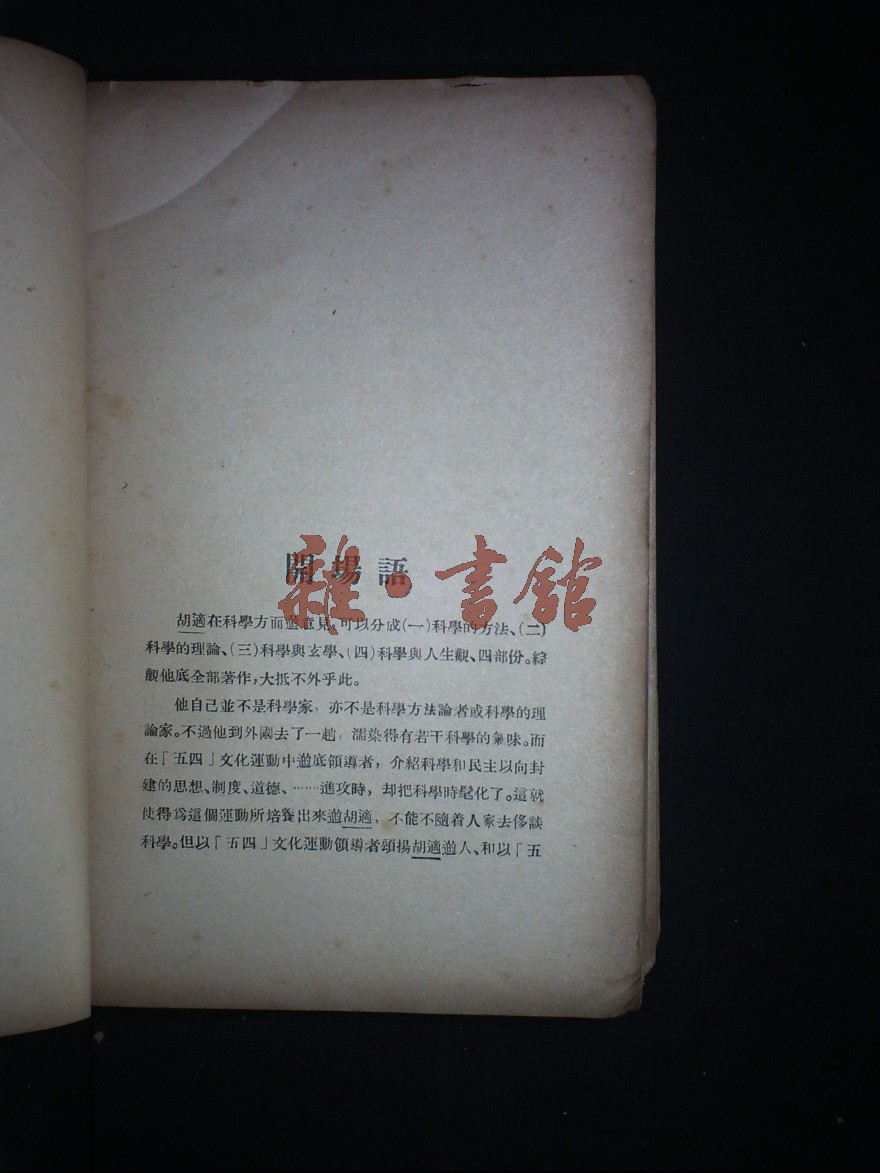 開場語
雜·書館
胡適在科學方面意見,可以分成(一)科學的方法、(二)
科學的理論、(三)科學與玄學、(四)科學與人生觀、四部份。綜
觀他底全部著作,大抵不外乎此。
他自己並不是科學家,亦不是科學方法論者或科學的理
論家。不過他到外國去了一趟,濡染得有若干科學的氣味。而
在「五四」文化運動中底領導者,介紹科學和民主以向封
建的思想、制度、道德、……進攻時,却把科學時髦化了。這就
使得爲這個運動所培養出來胡適,不能不隨着人家去侈談
科學。但以「五四」文化運動領導者頌揚胡適人、和以「五